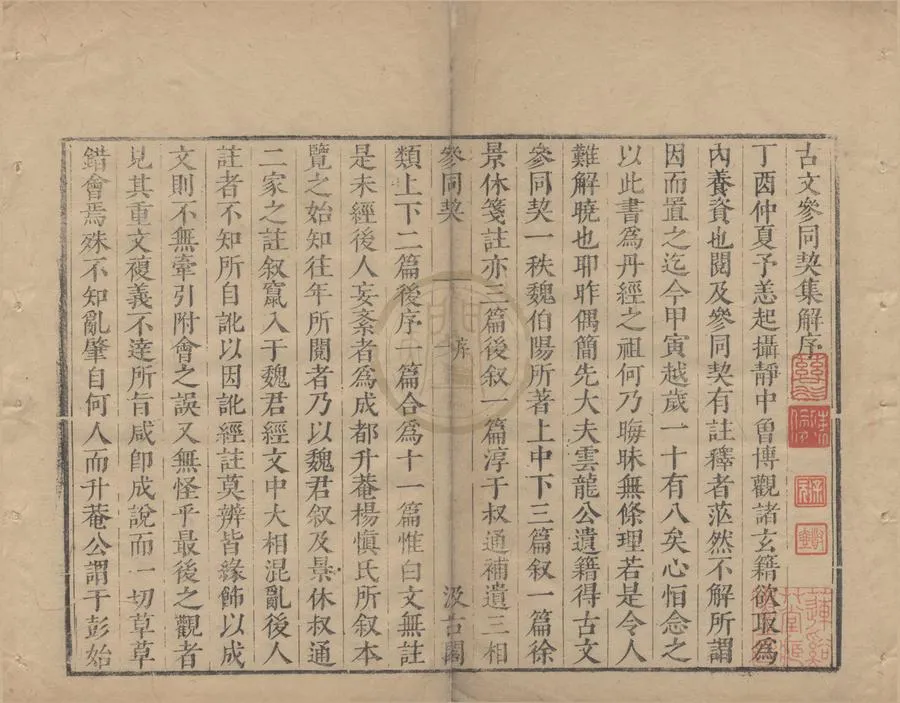 古文參同契集解序
丁酉仲夏予恙起攝靜中曾博觀諸玄籍欲取爲
內養資也閱及參同契有註釋者茫然不解所謂
因而置之迄今甲寅越歲一十有八矣心怕念之
以此書爲丹經之祖何乃晦昧無條理若是令人
難解曉也耶昨偶簡先大夫雲龍公遺籍得古文
參同契一秩魏伯陽所著上中下三篇叙一篇徐
景休箋註亦三篇後叙一篇淳于叔通補遺三相
參同契
序
一
汲古閣
類上下二篇後序一篇合爲十一篇惟白文無註
是未經後人妄紊者爲成都升菴楊慎氏所叙本
覽之始知往年所閱者乃以魏君叙及景休叔通
二家之註叙竄入于魏君經文中大相混亂後人
註者不知所自訛以因訛經註莫辨皆緣飾以成
文則不無牽引附會之誤又無怪乎最後之觀者
見其重文複義不達所旨咸卽成說而一切草草
錯會焉殊不知亂肇自何人而升菴公謂于彭始